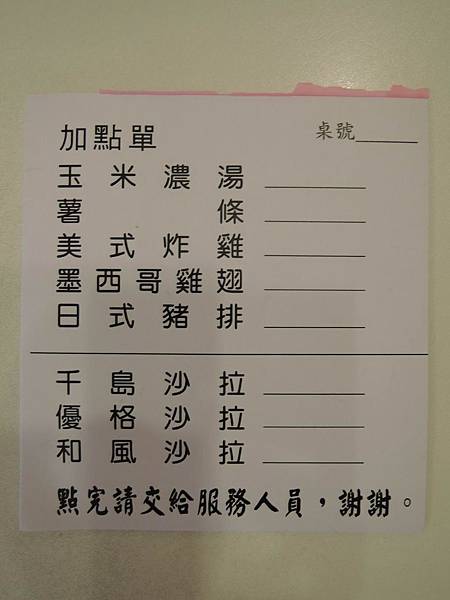 加點單 桌號______
玉米濃湯 ______
薯條 ______
美式炸雞 ______
墨西哥雞翅 ______
日式豬排 ______
千島沙拉 ______
優格沙拉 ______
和風沙拉 ______
點完請交給服務人員，謝謝。